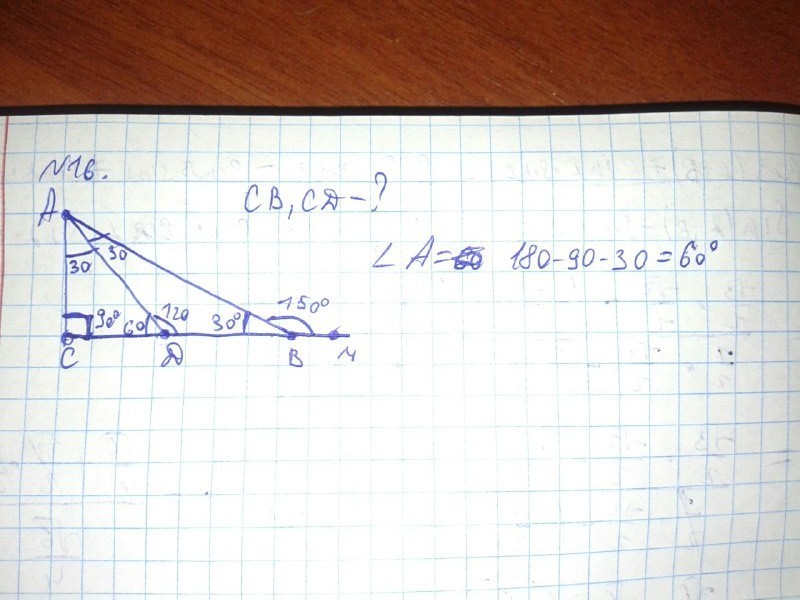 №16.
CB, CD - ?
∠ A = 180-90-30=60°
A
30
30
90°
60
120
30°
150°
C
D
B
M